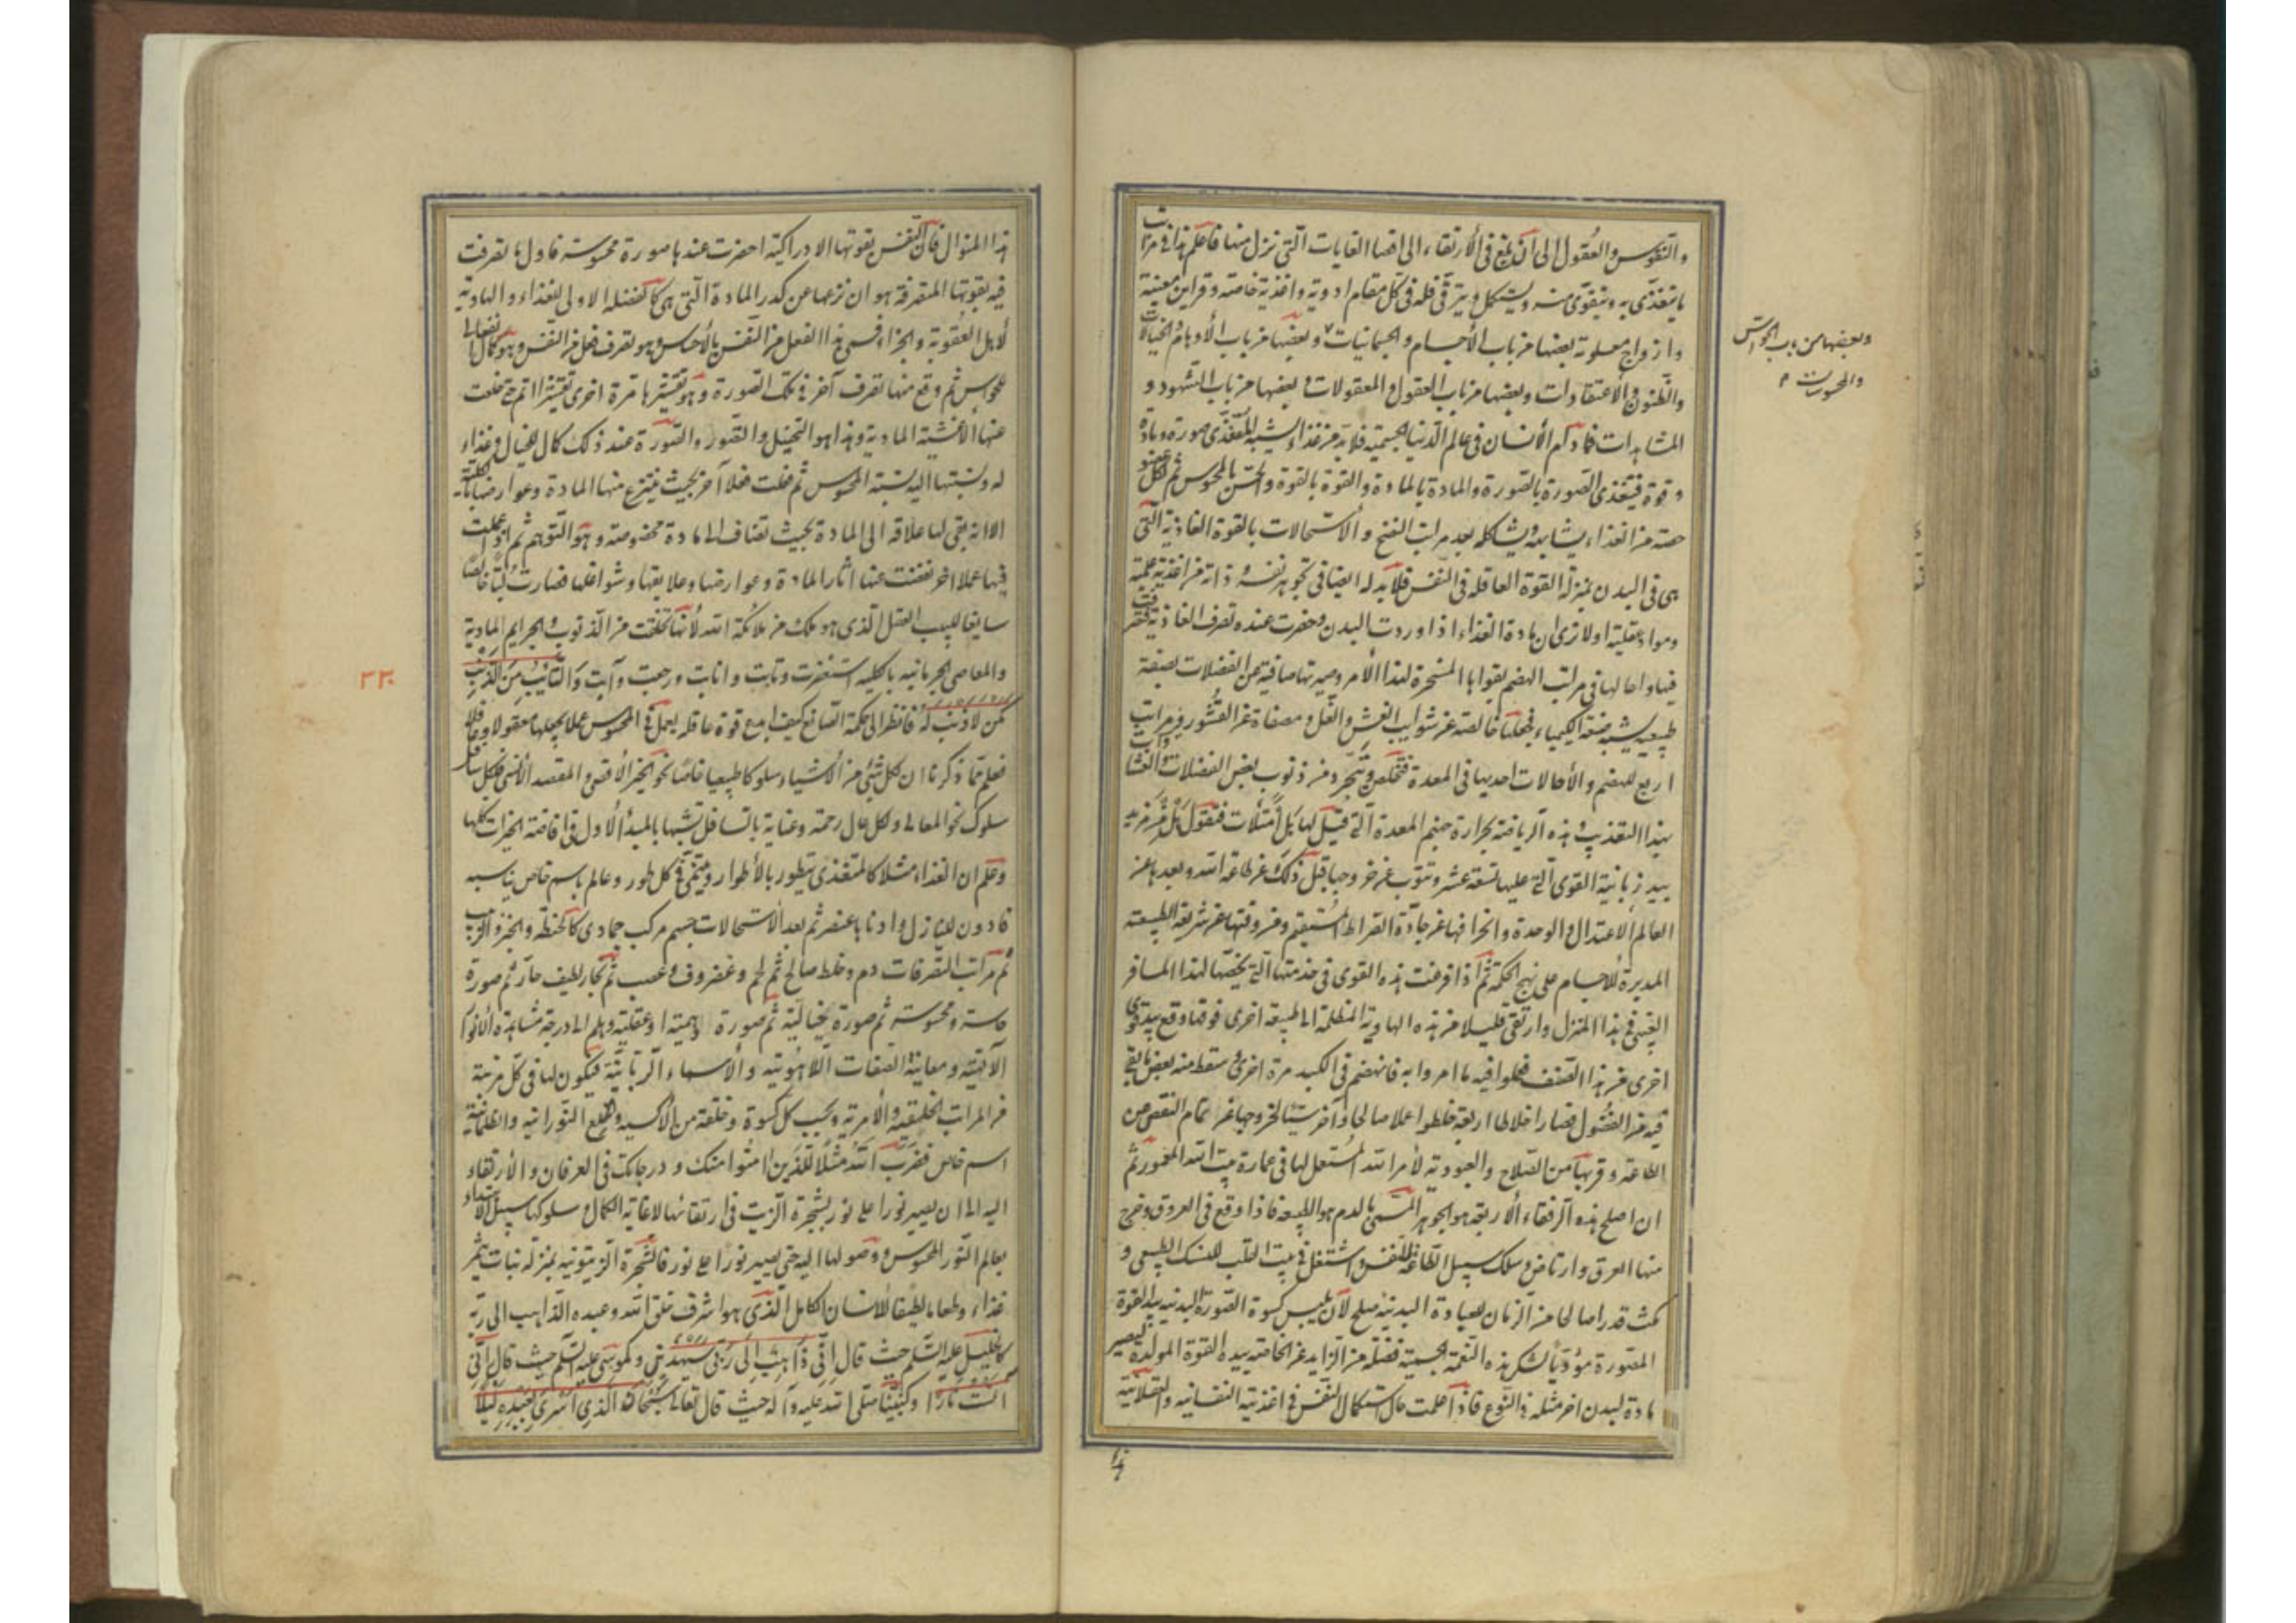 والنفوس والعقول الى ان يقع فى الارتقاء الى اقصا الغايات التى نزل منها فاعلم هذا فى مراتب
ما يتغذى به ويتقوى منه ويستكمل ويترقى فله فى كل مقام ادوية واغذية خاصة وقراين معينة
وازواج معلومة بعضها من باب الأجسام والجسمانيات وبعضها من باب الأوهام والخيالات
والظنون والاعتقادات وبعضها من باب العقول والمعقولات وبعضها من باب الشهود و
المشاهدات فما دام الأنسان فى عالم الدنيا الجسمية فلا بد من غذاء يشبه المتغذى صورة ومادة
وقوة فيتغذى الصورة بالصورة والمادة بالمادة والقوة بالقوة والحس بالمحسوس ثم لكل عضو
حصة من الغذاء يشابهه ويشاكله بعد مراتب النضج والاستحالات بالقوة الغاذية التى
هى فى البدن بمنزلة القوة العاقلة فى النفس فلا بد له ايضا فى تجوهر نفسه وذاته من اغذية علمية
ومواد عقلية اولا ترى ان مادة الغذاء اذا وردت البدن وحضرت عنده تصرف الغاذية
فيها واحالها فى مراتب الهضم بقواها المسخرة لهذا الأمر وصيرتها صافية من الفضلات بصنعة
طبيعية يشبه صنعة الكيمياء فجعلتها خالصة عن شوايب الغش والغل ومصفاة عن القشور ومراتب
اربع للهضم والأحالات احديها فى المعدة فتخلص وتتجرد من ذنوب بعض الفضلات
بهذا التعذيب وهذه الرياضة بحرارة جهنم المعدة التى قيل لها هل امتلأت فتقول هل من مزيد
بيد زبانية القوى التى عليها تسعة عشر وتتوب عن خروجها قبل ذلك عن طاعة الله وبعدها عن
العالم الاعتدال والوحدة وانحرافها عن جادة الصراط المستقيم ومروقها عن شريعة الطبيعة
المدبرة للأجسام على نهج الحكمة ثم اذا فرغت هذه القوى فى خدمتها التى يخصها لهذا المسافر
الغيبى فى هذا المنزل وارتقى قليلا من هذه الهاوية المظلمة الى طبيعة اخرى فوقها وقع بيد قوى
اخرى من هذا الصنف فعملوا فيه ما امروا به فانهضم فى الكبد مرة اخرى وسقط منه بعض ما بقى
فيه من الفضول فصار اخلاطا اربعة خلطوا عملا صالحا وآخر سيئا لخروجها عن تمام النقص من
الطاعة وقربها من الصلاح والعبودية لأمر الله المستعمل لها فى عمارة بيت الله المعمور ثم
ان اصلح هذه الرفقاء الأربعة هو الجوهر المسمى بالدم هو اللطيفة فاذا وقع فى العروق وخرج
منها العرق وارتاض وسلك سبيل الطاعة للنفس واشتغل فى بيت القلب للنسك الطبيعى و
مكث قدرا صالحا من الزمان للعبادة البدنية صلح لأن يلبس كسوة الصورة البدنية بيد القوة
المصورة مؤديا لشكر هذه النعمة الجسمية فضله من الزايد عن الحاجة بيده القوة المولدة ليصير
مادة لبدن اخر مثله فى النوع فاذا علمت حال استكمال النفس فى اغذية النفسانية والعقلانية
وبعضها من باب الحواس
والمحسوسات
هذا المنوال فان النفس بقوتها الادراكية احضرت عندها صورة محسوسة فاول ما تصرفت
فيه بقوتها المتصرفة هو ان نزعها عن كدر المادة التى هى كالفضلة الاولى للغذاء والهاوية
لأهل العقوبة والجزاء فسمى هذا الفعل من النفس بالأحساس وهو تصرف فعل من النفس وهو كمال
للحواس ثم وقع منها تصرف آخر فى تلك الصورة وهو تقشيرها مرة اخرى تقشيرا اتم حتى خلعت
عنها الأغشية المادية وهذا هو التخيل والتصور والصورة عند ذلك كمال للخيال وغذاء
له ونسبتها اليه نسبة المحسوس ثم فعلت فعلا آخر بحيث ينتزع منها المادة وعوارضها بالكلية
الا انه بقى لها علاقة الى المادة بحيث تضاف الى مادة مخصوصة وهو التوهم ثم اذا عملت
فيها عملا اخر نفضت عنها اثار المادة وعوارضها وعلايقها وشواغلها فصارت لبا خالصا
سايغا للبيب العقل الذى هو ملك من ملائكة الله لأنها تخلصت من الذنوب والجرايم المادية
والمعاصى الجرمانية بالكلية استغفرت وتابت وانابت ورجعت وآبت والتائب من الذنب
كمن لا ذنب له فانظر الى حكمة الصانع كيف ابدع قوة عاقلة يعمل فى المحسوس عملا يجعلها معقولا
فعلم مما ذكرنا ان لكل شيئ من الأشياء سلوكا طبيعيا خاصا نحو الخير الأقصى والمقصد الأسنى فلكل سافل
سلوك نحو المعالى ولكل عال رحمة وعناية بالسافل تشبها بالمبدأ الأول فى افاضة الخيرات كلها
وعلم ان الغذاء مثلا كالمتغذى يتطور بالأطوار ويسمى فى كل طور وعالم باسم خاص يناسبه
فادون المنازل وادناها عنصر ثم بعد الاستحالات جسم مركب جمادى كالحنطة والخبز
ثم مركب التصرفات دم وخلط صالح ثم لحم وغضروف وعصب ثم بخار لطيف حار ثم صورة
حاسة ومحسوسة ثم صورة خيالية ثم صورة وهمية او عقلية وهلم الى درجة مشاهدة الأنوار
الآلهية ومعاينة الصفات اللاهوتية والأسماء الربانية فيكون لها فى كل مرتبة
من المراتب الخلقية والأمرية وبحسب كل كسوة وخلعة من الأكسية والخلع النورانية والظلمانية
اسم خاص فضرب الله مثلا للذين امنوا منك ودرجاتك فى العرفان والأرتقاء
اليه الى ان يصير نورا على نور بشجرة الزيت فى ارتقائها لاغاية الكمال وسلوكها سبيل الابتداء
بعالم النور المحسوس ووصولها اليه حتى يصير نورا على نور فالشجرة الزيتونية بمنزلة نبات يثمر
غذاء وطعاما لطيفا للأنسان الكامل الذى هو اشرف خلق الله وعبده الذاهب الى ربه
كالخليل عليه السلم حيث قال انى ذاهب الى ربى سيهدين وكموسى عليه السلم حيث قال انى
آنست نارا وكنبينا صلى الله عليه وآله حيث قال تعالى سبحان الذى اسرى بعبده ليلا